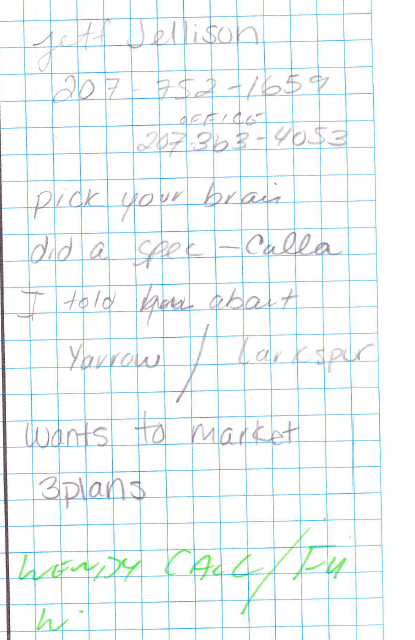 Jeff Jellison
207-752-1659
OFFICE
207-363-4053
pick your brain
did a spec - Calla
I told him about
Yarrow / Larkspur
wants to market
3 plans
WENDY CALL / FU